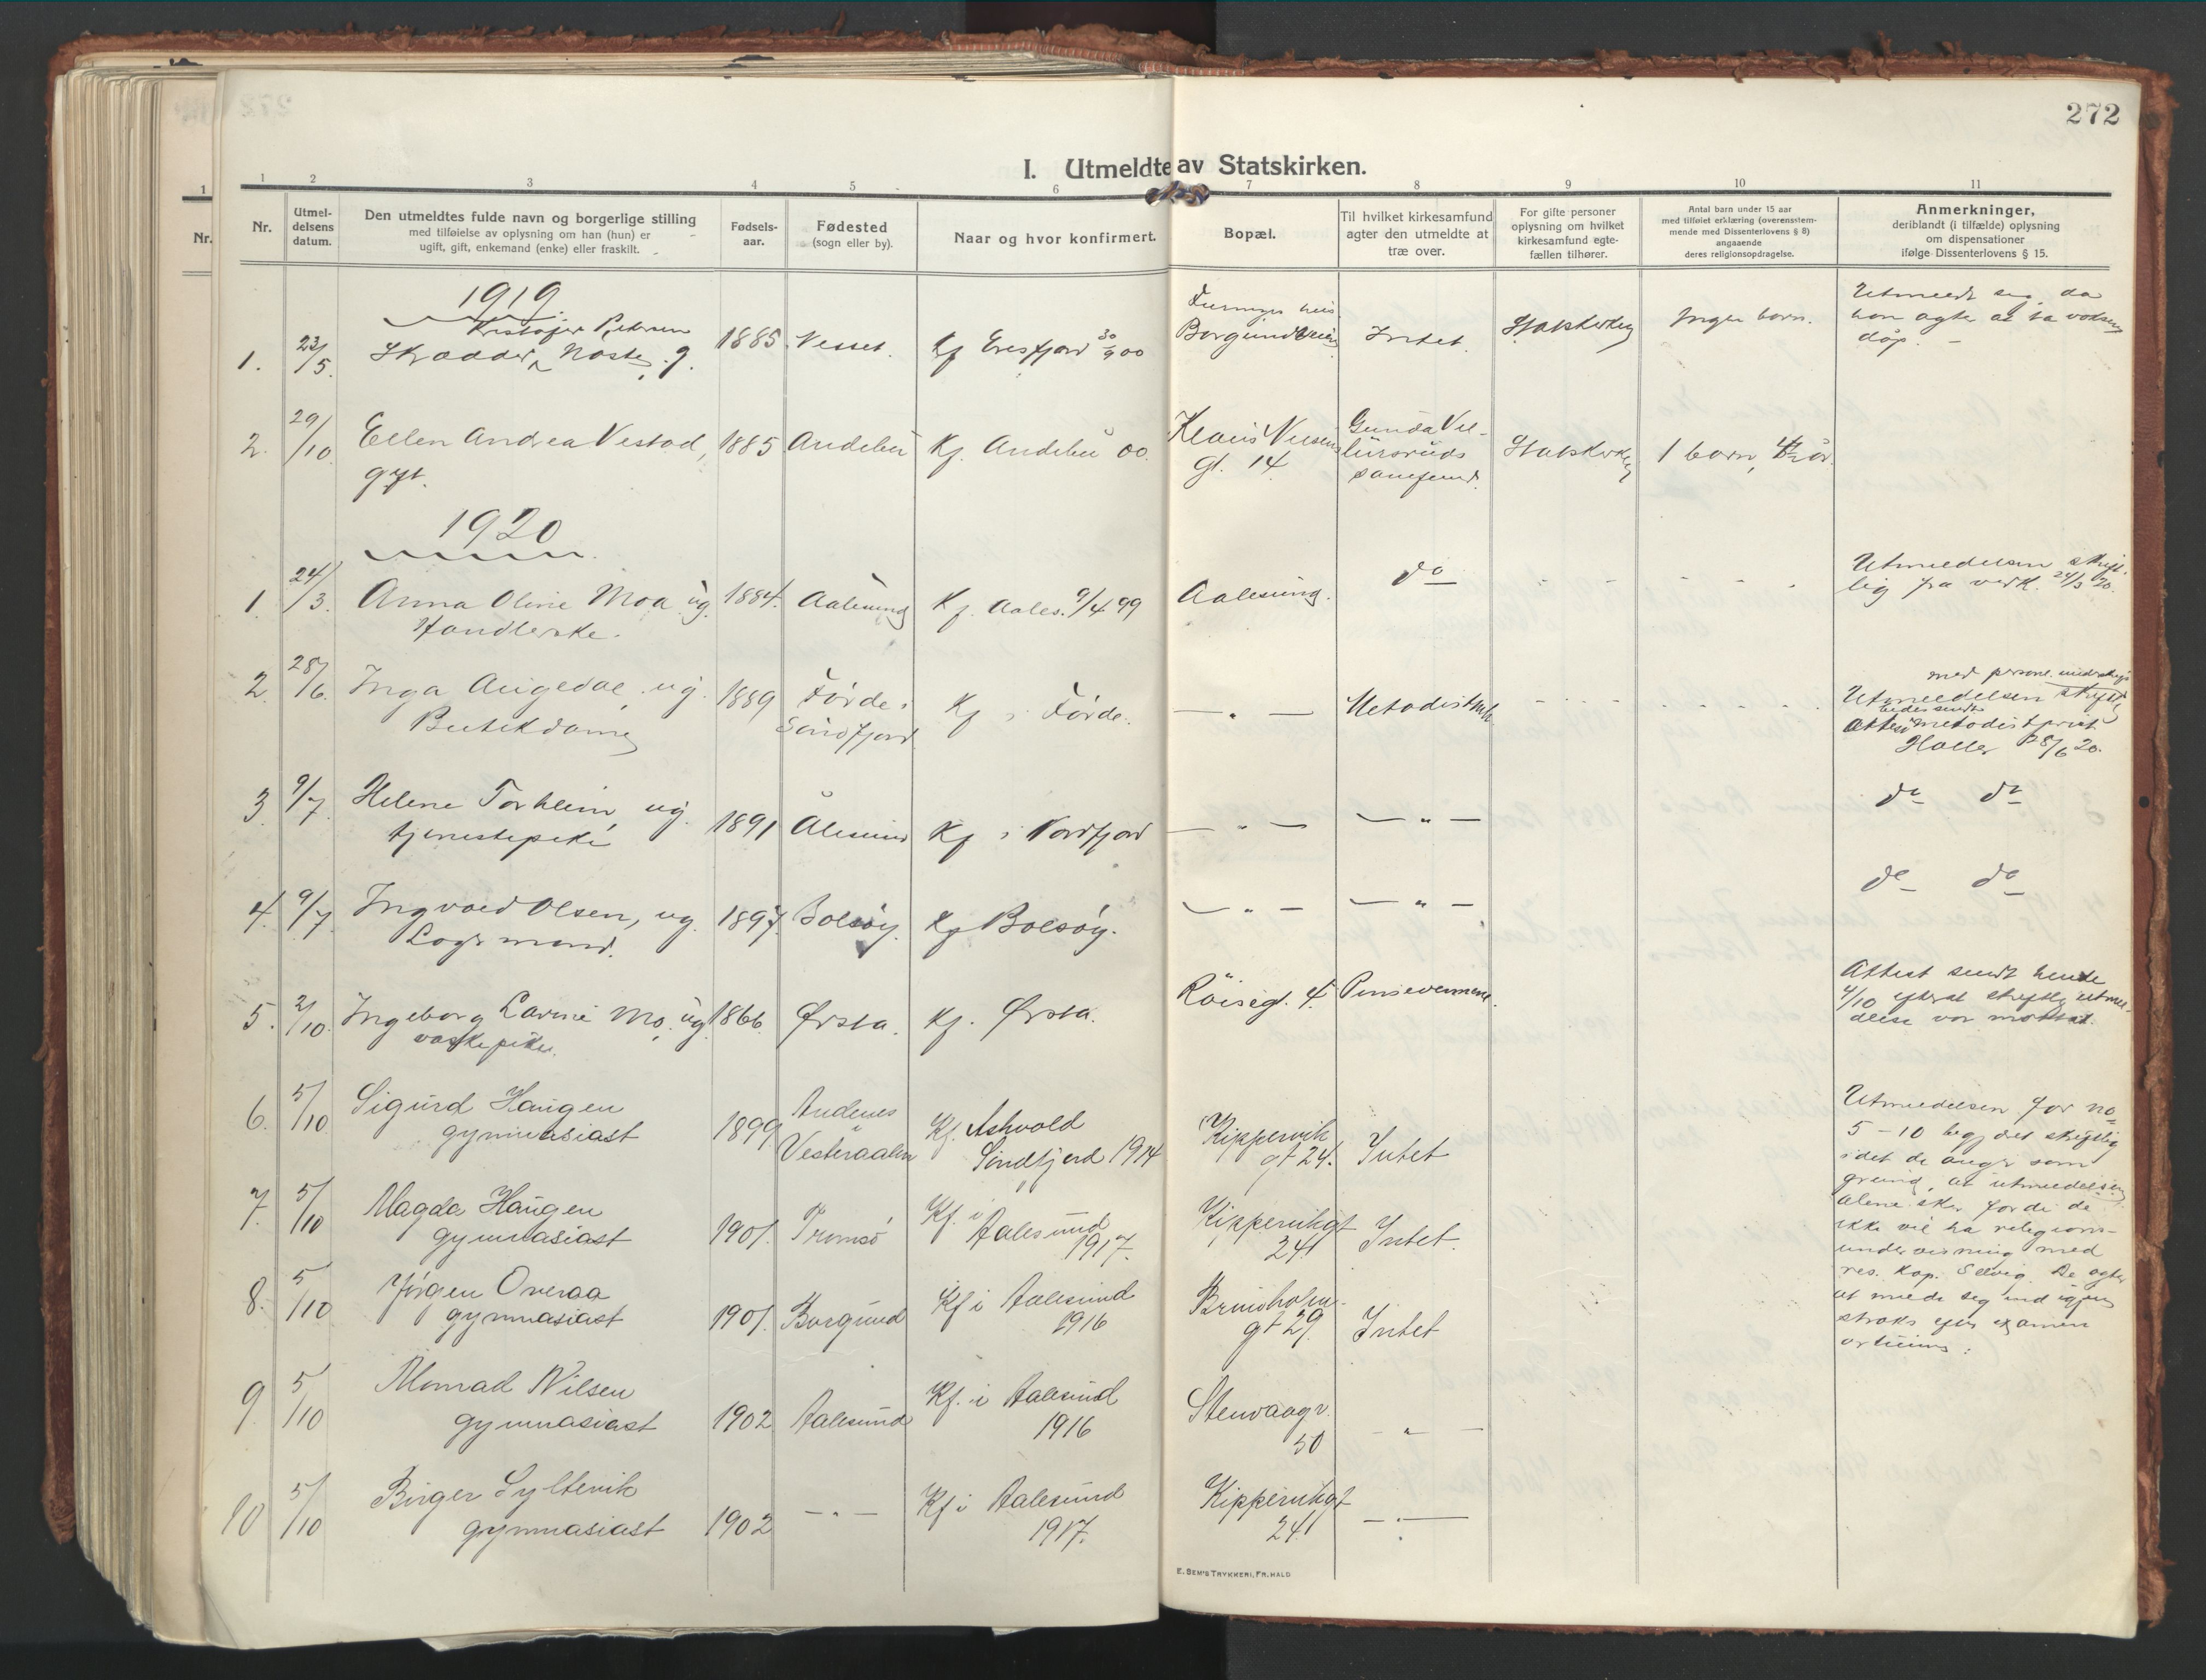 272
I. Utmeldte av Statskirken.
1 2 3 4 5 6 7 8 9 10 11
Nr.
Utmeldelsens datum.
Den utmeldtes fulde navn og borgerlige stilling
med tilføielse av oplysning om han (hun) er
ugift, gift, enkemand (enke) eller fraskilt.
Fødselsaar.
Fødested
(sogn eller by).
Naar og hvor konfirmert.
Bopæl.
Til hvilket kirkesamfund
agter den utmeldte at
træ over.
For gifte personer
oplysning om hvilket
kirkesamfund egte-
fællen tilhører.
Antal barn under 15 aar
med tilføiet erklæring (overensstem-
mende med Dissenterlovens § 8)
angaaende
deres religionsopdragelse.
Anmerkninger,
deriblandt (i tilfælde) oplysning
om dispensationer
ifølge Dissenterlovens § 15.
1919.
1. 23/5. Skrædder Kristofer Petersen Næste, g. 1885 Nesset. Kf Eresfjord 30/9 00 Borgundveien Intet. Statskirken Ingen barn.
Utmeldt sig, da
han agter at ta voksen
dåp. –
2. 29/10 Ellen Andrea Vestad, 1885 Andebu Kf. Andebu 00. Klaus Nilsens
gift. gt. 14
samfund.
Statskirken 1 barn,
1920
1. 24/3. Anna Oline Moa ug. 1884. Aalesund Kf. Aales. 9/4 99 Aalesund. do
Handlerske.
Utmeldelsen skrift-
lig fra verk. 24/3 20.
2 28/6. Inga Angedal, ug. 1889 Førde i Kf i Førde. — " — Metodistkirk
Butikdame Søndfjord
Utmeldelsen skriftl
Attest metodistprest
Haller 28/6 20.
3. 9/7. Helene Torheim, ug. 1891 Ålesund Kf i Nordfjord — " — — " — do do
tjenestepike
4. 9/7 Ingvald Olsen, ug. 1897. Bolsøy. Kf Bolsøy. — " — — " — do do
Logsmand.
5. 2/10. Ingeborg Larine Mo, ug. 1866. Ørsta. Kf. Ørsta. Røisegt. 4. Pinsevennene.
vaskepike.
Attest sendt hende
4/10 efterat skriftlig utmel-
delse var mottat.
6. 5/10 Sigurd Haugen 1899 Andenes Kf. Askvold Kippervik
gymnasiast Vesteraalen Søndfjord 1914 gt 24. Intet
7. 5/10 Magda Haugen 1901. Tromsø Kf. i Aalesund Kippervikgt
gymnasiast 1917. 24 Intet.
8. 5/10 Jørgen Overaa 1901. Borgund Kf i Aalesund Brunholm-
gymnasiast 1916 gt 29. Intet
9. 5/10 Monrad Nilsen 1902 Aalesund Kf. i Aalesund Stenvaagv.
gymnasiast 1916 50 — " —
10 5/10 Birger Syltevik 1902 — " — Kf i Aalesund Kippervikgt
gymnasiast 1917. 24 — " —
Utmeldelsen for no
5 – 10 begjært skriftlig
idet de angir som
grund, at utmeldelsen
alene sker fordi de
ikke vil ha religions-
undervisning med
res. kap. Selvig. De agter
at melde seg ind igjen
straks efter examen
artium.
E. SEM'S TRYKKERI, FR.HALD